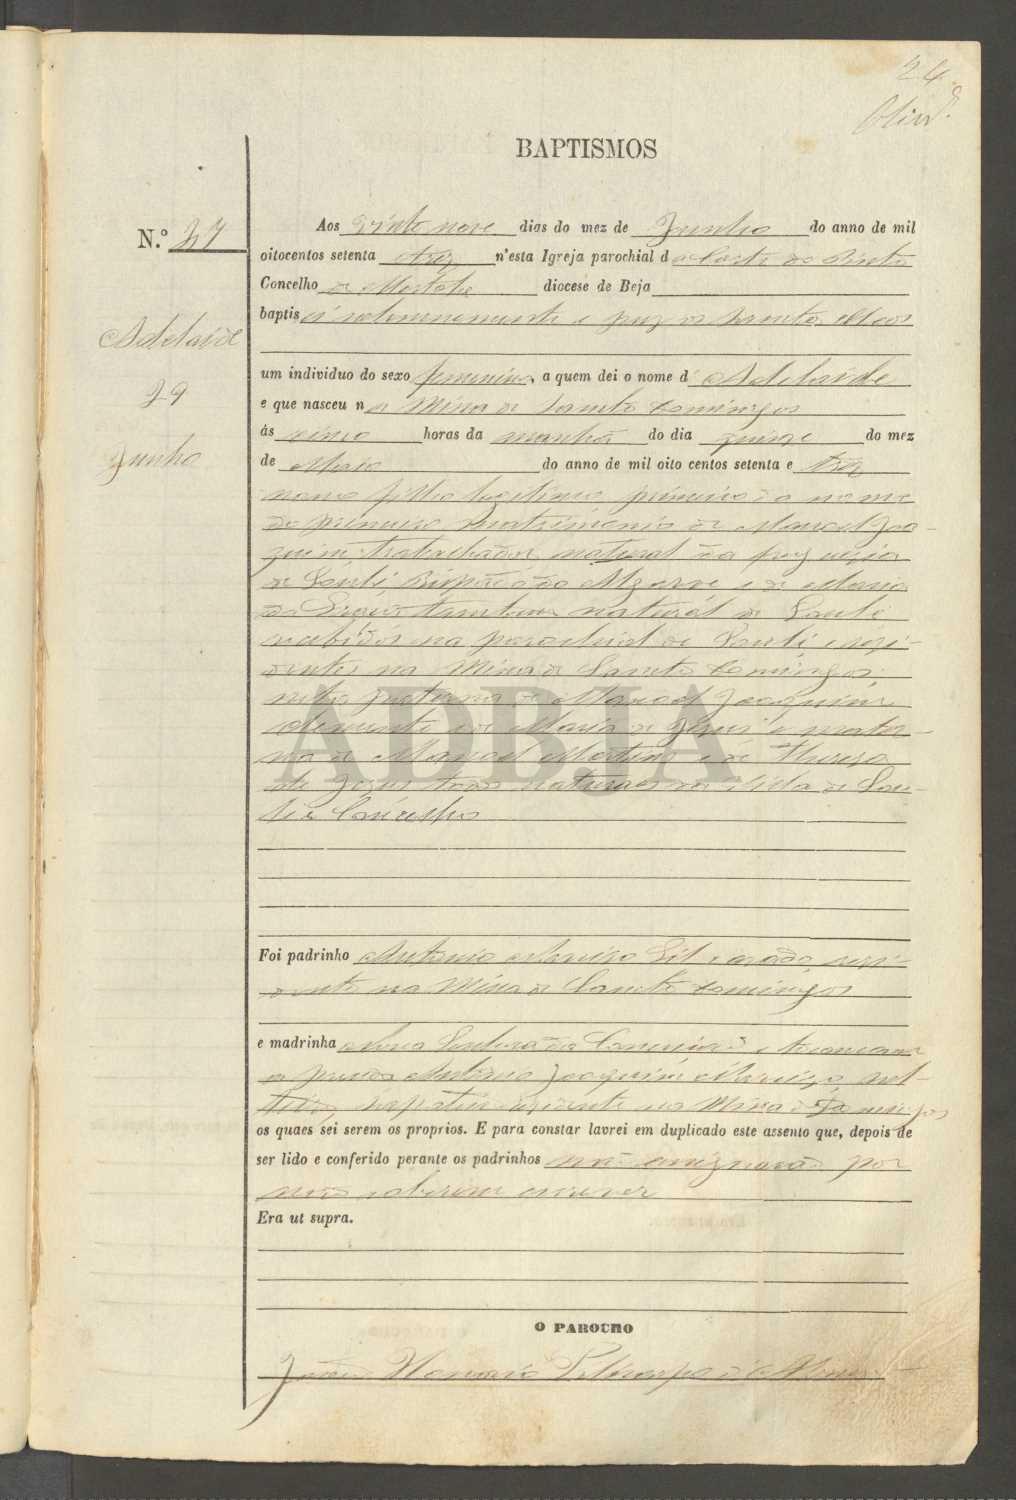 24
Oliv.ª
BAPTISMOS
N.º 37
Adelaide
29
Junho
Aos vinte nove dias do mez de Junho do anno de mil
oitocentos setenta e trez n'esta Igreja parochial de Corte do Pinto
Concelho de Mertola diocese de Beja
baptisei solemnemente e puz os Santos Oleos
um individuo do sexo femenino, a quem dei o nome d' Adelaide
e que nasceu na Mina de Santo Domingos
ás cinco horas da manhã do dia quinze do mez
de Maio do anno de mil oito centos setenta e trez
filha legitima primeira do nome
do primeiro matrimonio de Manoel Joa-
quim trabalhador natural da freguezia
de Loulé Bispado do Algarve e de Maria
da tambem natural de Loulé
recebidos na parochial de Loulé e rezi-
dentes na Mina de Santo Domingos;
neta paterna de Manoel Joaquim
Clemente e de Maria de Jezus e mater-
na de Manoel Martins e de Thereza
de Jezus todos naturaes da Villa de Lou-
lé
ADBJA
Foi padrinho Antonio Gil, casado, rezi-
dente na Mina de Santo Domingos
e madrinha Nossa Senhora da Conceição e tocou com
a prenda Antonio Joaquim sol-
teiro, sapateiro rezidente na Mina de S. Domingos
os quaes sei serem os proprios. E para constar lavrei em duplicado este assento que, depois de
ser lido e conferido perante os padrinhos não assignarão por
não saberem escrever
Era ut supra.
O PAROCHO
João